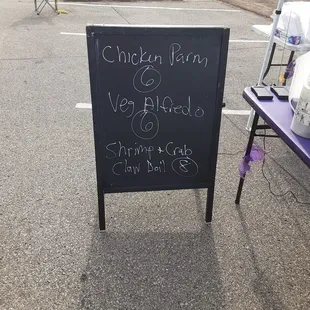 Chicken Parm
6
Veg Alfredo
6
Shrimp + Crab
Claw Boil 8